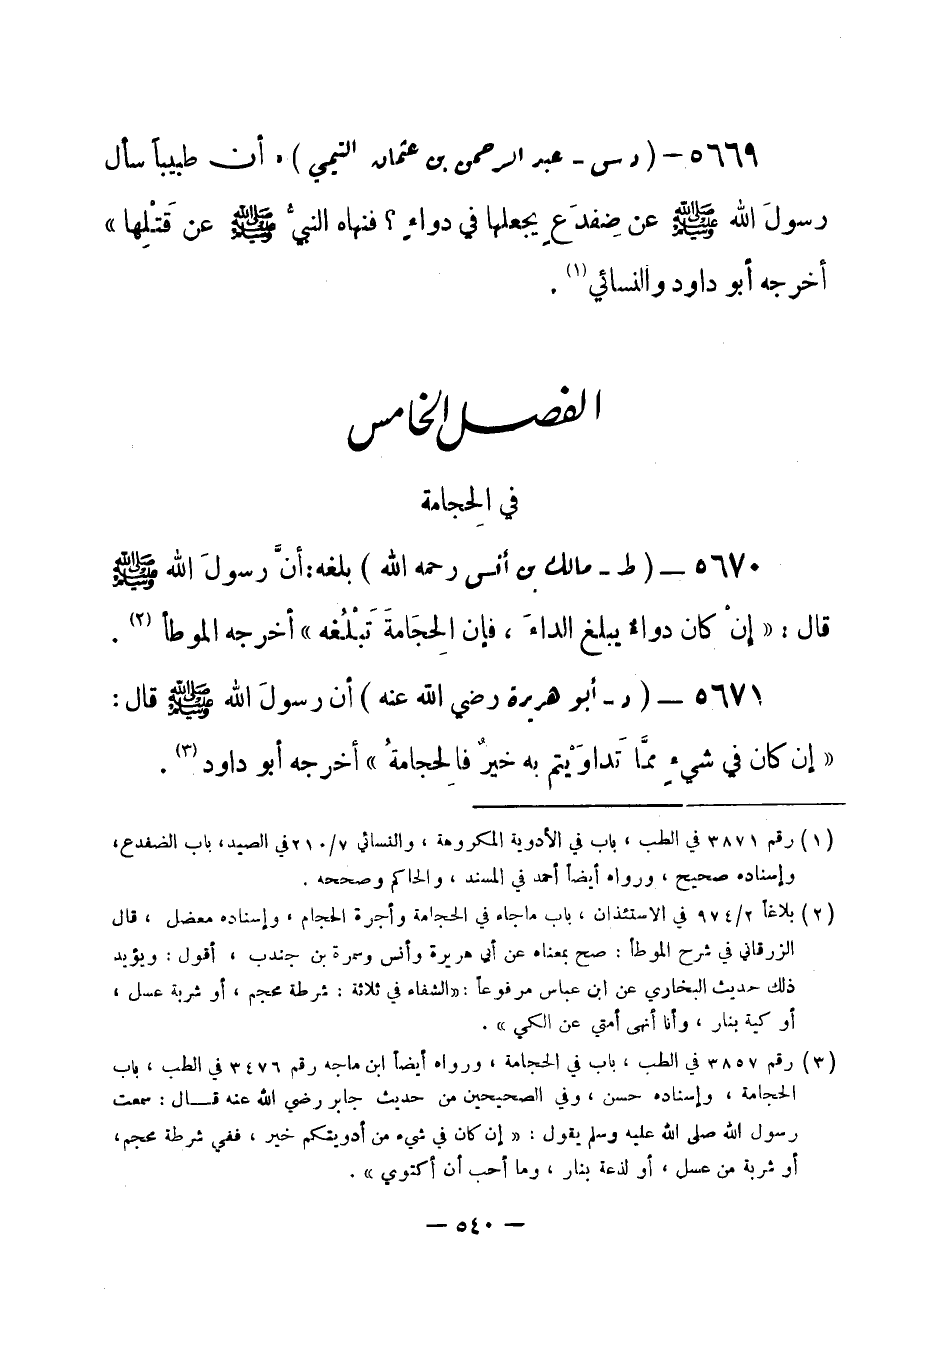 ٥٦٦٩ – ( د س – عبد الرحمن بن عثمان التيمي ) ، أن طبيباً سأل
رسولَ الله ﷺ عن ضِفدَعٍ يجعلها في دواءٍ ؟ فنهاه النبيُّ ﷺ عن قَتْلِها »
أخرجه أبو داود والنسائي (١) .
الفصل الخامس
في الحِجامة
٥٦٧٠ – ( ط – مالك بن أنس رحمه الله ) بلغه : أنَّ رسولَ الله ﷺ
قال : « إنْ كان دواءٌ يبلغ الداءَ ، فإن الحِجَامةَ تَبْلُغه » أخرجه الموطأ (٢) .
٥٦٧١ – ( د – أبو هريرة رضي الله عنه ) أن رسولَ الله ﷺ قال :
« إن كان في شيءٍ ممَّا تَداوَيْتم به خيرٌ فالحِجامةُ » أخرجه أبو داود (٣) .
(١) رقم ٣٨٧١ في الطب ، باب في الأدوية المكروهة ، والنسائي ٢١٠/٧ في الصيد ، باب الضفدع ،
وإسناده صحيح ، ورواه أيضاً أحمد في المسند ، والحاكم وصححه .
(٢) بلاغاً ٩٧٤/٢ في الاستئذان ، باب ماجاء في الحجامة وأجرة الحجام ، وإسناده معضل ، قال
الزرقاني في شرح الموطأ : صح بمعناه عن أبي هريرة وأنس وسمرة بن جندب ، أقول : ويؤيد
ذلك حديث البخاري عن ابن عباس مرفوعاً : « الشفاء في ثلاثة : شرطة محجم ، أو شربة عسل ،
أو كية بنار ، وأنا أنهى أمتي عن الكي » .
(٣) رقم ٣٨٥٧ في الطب ، باب في الحجامة ، ورواه أيضاً ابن ماجه رقم ٣٤٧٦ في الطب ، باب
الحجامة ، وإسناده حسن ، وفي الصحيحين من حديث جابر رضي الله عنه قـــال : سمعت
رسول الله صلى الله عليه وسلم يقول : « إن كان في شيء من أدويتكم خير ، ففي شرطة محجم ،
أو شربة من عسل ، أو لذعة بنار ، وما أحب أن أكتوي » .
– ٥٤٠ –